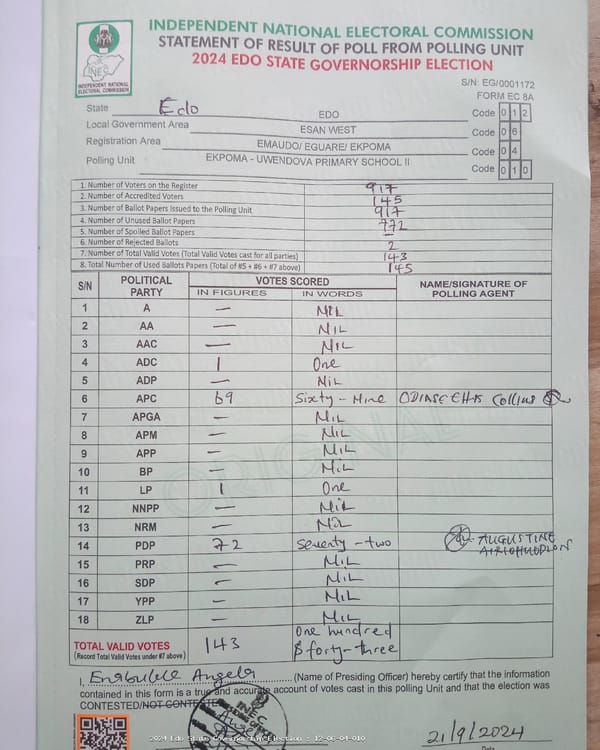 INDEPENDENT NATIONAL ELECTORAL COMMISSION
STATEMENT OF RESULT OF POLL FROM POLLING UNIT
2024 EDO STATE GOVERNORSHIP ELECTION
INEC
INDEPENDENT NATIONAL ELECTORAL COMMISSION
S/N: EG/0001172
FORM EC 8A
State Edo EDO Code 0 1 2
Local Government Area ESAN WEST Code 0 6
Registration Area EMAUDO/ EGUARE/ EKPOMA Code 0 4
Polling Unit EKPOMA - UWENDOVA PRIMARY SCHOOL II Code 0 1 0
1. Number of Voters on the Register 917
2. Number of Accredited Voters 145
3. Number of Ballot Papers Issued to the Polling Unit 917
4. Number of Unused Ballot Papers 772
5. Number of Spoiled Ballot Papers —
6. Number of Rejected Ballots 2
7. Number of Total Valid Votes (Total Valid Votes cast for all parties) 143
8. Total Number of Used Ballots Papers (Total of #5 + #6 + #7 above) 145
S/N POLITICAL PARTY VOTES SCORED NAME/SIGNATURE OF POLLING AGENT
IN FIGURES IN WORDS
1 A — NIL
2 AA — NIL
3 AAC — NIL
4 ADC 1 One
5 ADP — NIL
6 APC 69 Sixty-Nine Collins
7 APGA — NIL
8 APM — NIL
9 APP — NIL
10 BP — NIL
11 LP 1 One
12 NNPP — NIL
13 NRM — NIL
14 PDP 72 Seventy-two AUGUSTINE
15 PRP — NIL
16 SDP — NIL
17 YPP — NIL
18 ZLP — NIL
ORIGINAL
TOTAL VALID VOTES 143 One hundred
(Record Total Valid Votes under #7 above) & forty-three
I, Angela (Name of Presiding Officer) hereby certify that the information
contained in this form is a true and accurate account of votes cast in this polling Unit and that the election was
CONTESTED/NOT CONTESTED
2024 Edo State Governorship Election : 12-06-04-010
21/9/2024
Date